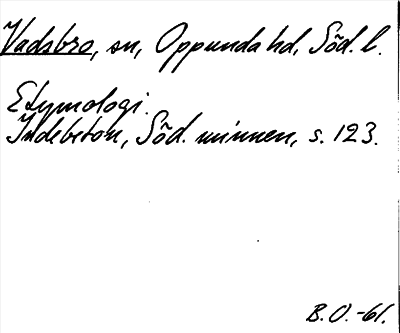 Vadsbro, sn, Oppunda hd, Söd. l.
Etymologi.
Indebetou, Söd. minnen, s. 123.
B.O.-61.